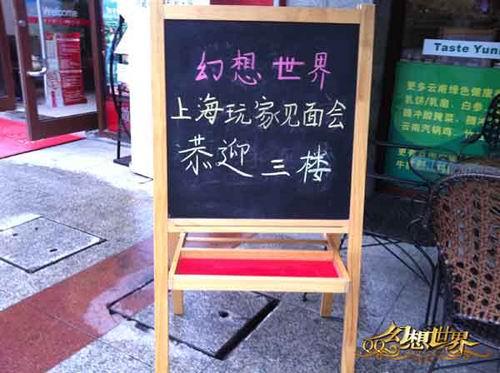 幻想世界
上海玩家见面会
恭迎 三楼
Welcome
Taste Yun
更多云南绿色健康
乳饼/乳扇、白参
云南汽锅鸡
QQ幻想世界